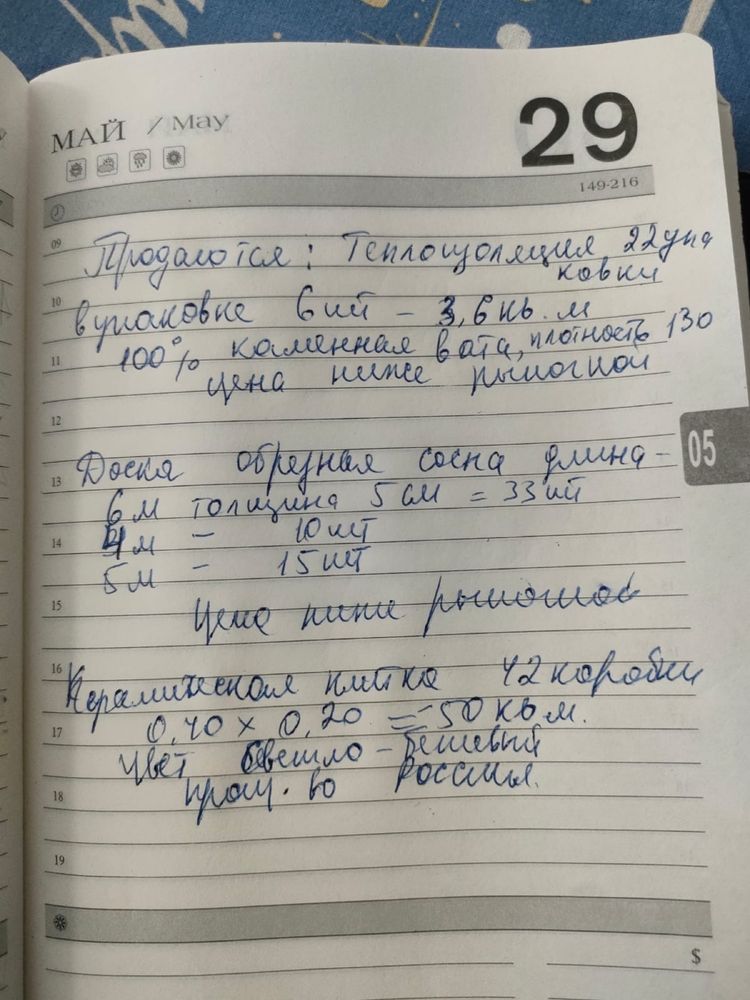 МАЙ / May
29
149-216
09
Продаются: Теплоизоляция 22 упа
ковки
10
в упаковке 6 шт - 3,6 кв. м
11
100% каменная вата, плотность 130
цена ниже рыночной
12
13
Доска обрезная сосна длина -
05
6 м толщина 5 см = 33 шт
14
4 м - 10 шт
5 м - 15 шт
15
Цена ниже рыночной
16
Керамическая плитка 42 коробки
17
0,40 x 0,20 = 50 кв м.
Цвет светло-бежевый
18
произ-во Россия.
19
$